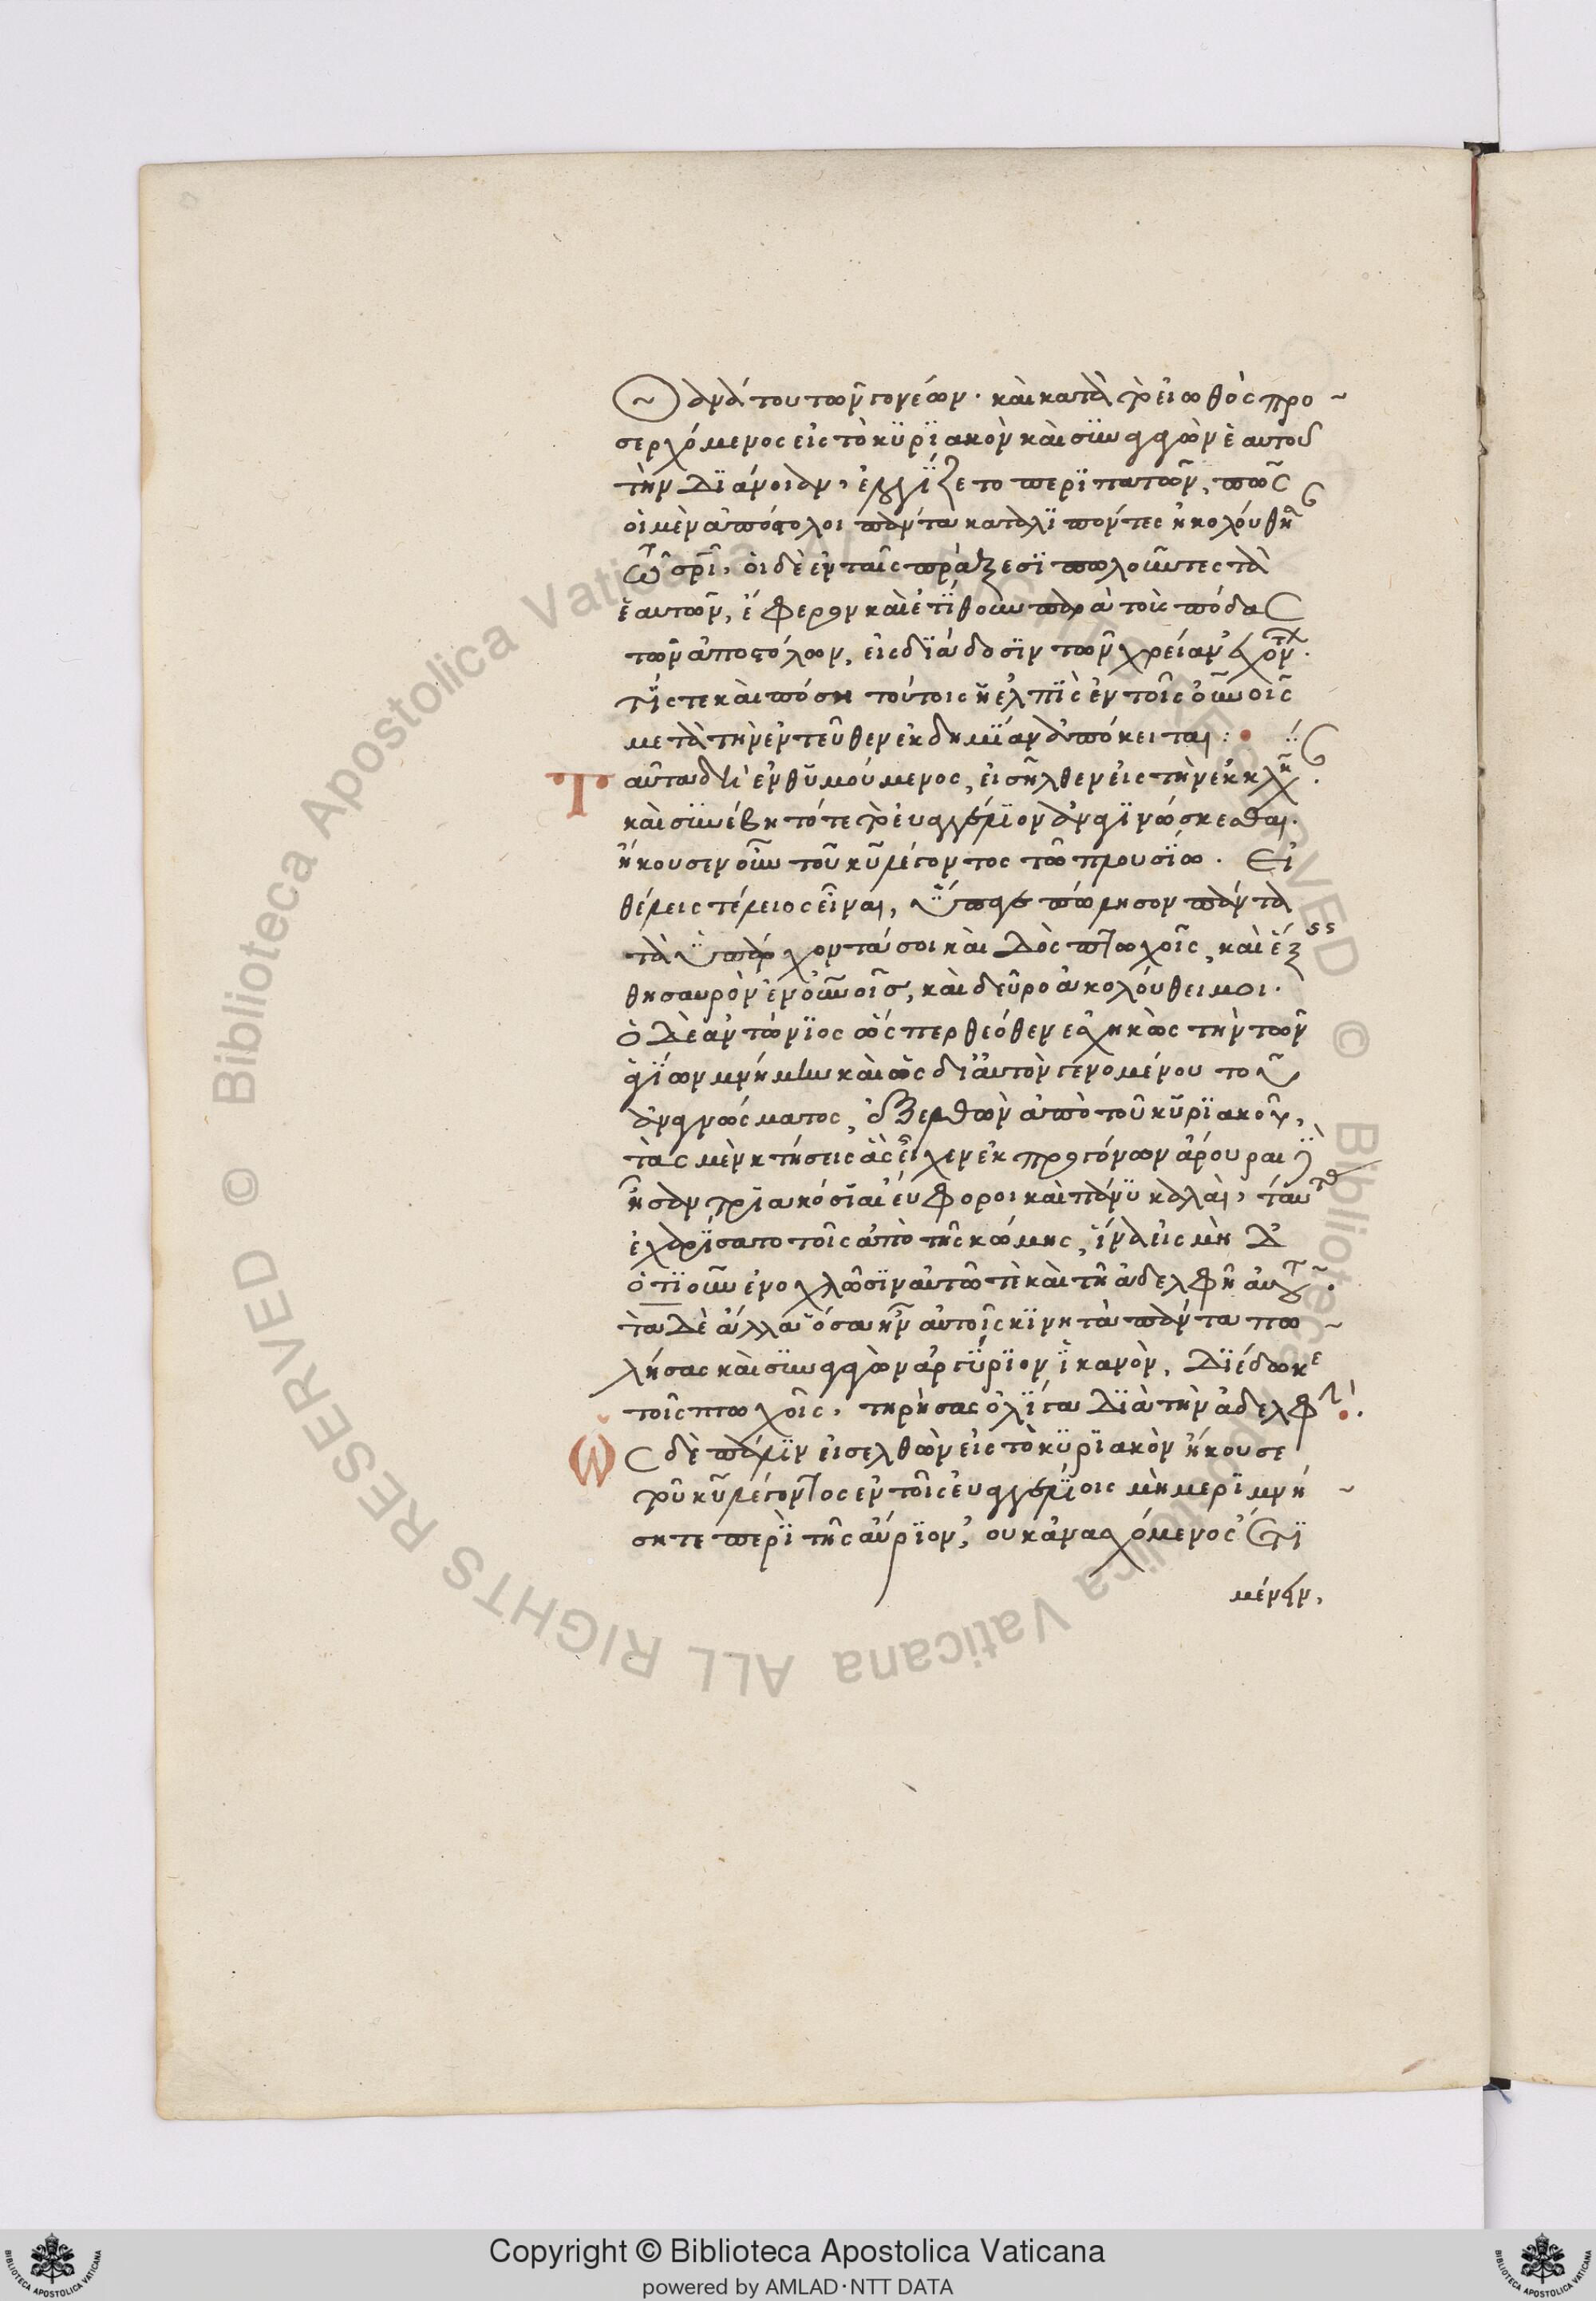 θανάτου τῶν γονέων. καὶ κατὰ τὸ εἰωθὸς προ~
σερχόμενος εἰς τὸ κϋρϊακὸν καὶ σϋναγαγὼν ἑαυτοῦ
τὴν δϊάνοιαν, ἐλογΐζετο περϊπατῶν, πῶς
οἱ μὲν ἀπόστολοι πάντα καταλϊπόντες ἠκολούθησ
τῶ σρϊ, οἱ δὲ ἐν ταῖς πράξεσϊ πωλοῦντες τὰ
ἑαυτῶν, ἔφερον καὶ ἐτΐθουν παρὰ τοὺς πόδας
τῶν ἀποστόλων, εἰς δϊάδοσϊν τῶν χρείαν ἐχόντ.
τΐς τε καὶ πόση τούτοις ἡ ἐλπϊς ἐν τοῖς οὐνοις
μετὰ τὴν ἐντεῦθεν ἐκδημΐαν ἀπόκειται:
Ταῦτα δὴ ἐνθϋμούμενος, εἰσῆλθεν εἰς τὴν ἐκκλη.
καὶ σϋνέβη τότε τὸ εὐαγγέλϊον ἀναγϊνώσκεσθαι.
ἤκουσεν οὖν τοῦ κυ λέγοντος τῶ πλουσΐω. Εἰ
θέλεις τέλειος εἶναι, ὕπαγε πώλησον πάντα
τὰ ὑπάρχοντά σοι καὶ δὸς πτωχοῖς, καὶ ἕξεις
θησαυρὸν ἐν οὐνοις, καὶ δεῦρο ἀκολούθει μοι.
ὁ δὲ ἀντώνϊος ὥσπερ θεόθεν ἐσχηκὼς τὴν τῶν
ἁγΐων μνήμην καὶ ὡς δι' αὐτὸν γενομένου τοῦ
ἀναγνώσματος, ἐξελθὼν ἀπὸ τοῦ κϋρϊακοῦ,
τὰς μὲν κτήσεις ἃς εἶχεν ἐκ προγόνων ἄρουραι δὲ
ἦσαν τρϊακόσϊαι εὔφοροι καὶ πάνϋ καλαὶ, ταύτας
ἐχαρΐσατο τοῖς ἀπὸ τῆς κώμης, ἵνα εἰς μὴ δ
ὁτϊοῦν ἐνοχλῶσϊν αὐτῶ τὲ καὶ τῆ ἀδελφῆ αὐτοῦ.
τὰ δὲ ἄλλα ὅσα ἦν αὐτοῖς κϊνητὰ πάντα πω~
λήσας καὶ σϋναγαγὼν ἀργΰρϊον ἱκανὸν, δϊέδωκε
τοῖς πτωχοῖς, τηρήσας ὀλΐγα δϊὰ τὴν ἀδελφήν.
Ὡς δὲ πάλϊν εἰσελθὼν εἰς τὸ κϋρϊακὸν ἤκουσε
τοῦ κυ λέγοντος ἐν τοῖς εὐαγγελΐοις μὴ μερϊμνή~
σητε περὶ τῆς αὔρϊον, οὐκ ἀνασχόμενος ἔτϊ
μένειν,
Copyright © Biblioteca Apostolica Vaticana
powered by AMLAD·NTT DATA